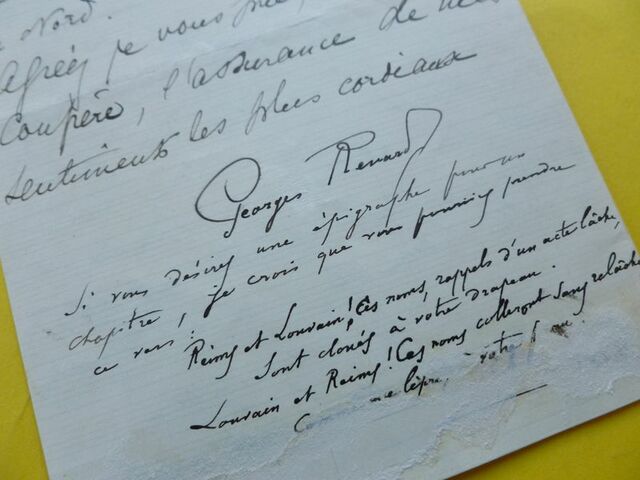 Nord.
Agréez je vous prie,
Confrère, l'assurance de mes
sentiments les plus cordiaux
Georges Renard
Si vous désirez une épigraphe pour un
chapitre, je crois que vous pourriez prendre
ce vers :
Reims et Louvain ! Ces noms, rappels d'un acte lâche,
Sont cloués à votre drapeau.
Louvain et Reims ! Ces noms colleront sans relâche
lèpre à votre